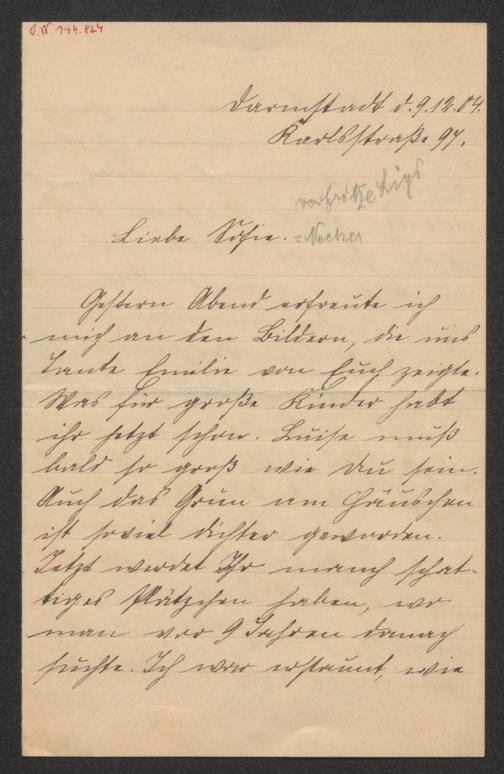 I.N. 144.824
Darmstadt d. 9.12.04.
Karlsstraße 97.
Liebe Sofie.
= Necker
Gestern Abend erfreute ich
mich an den Bildern, die uns
Tante Emilie von Euch zeigte.
Was für große Kinder habt
ihr jetzt schon. Luise muß
bald so groß wie Du sein.
Auch das Grün am Häuschen
ist soviel dichter geworden.
Jetzt werdet Ihr manch schat-
tiges Plätzchen haben, wo
man vor 9 Jahren danach
suchte. Ich war erstaunt, wie